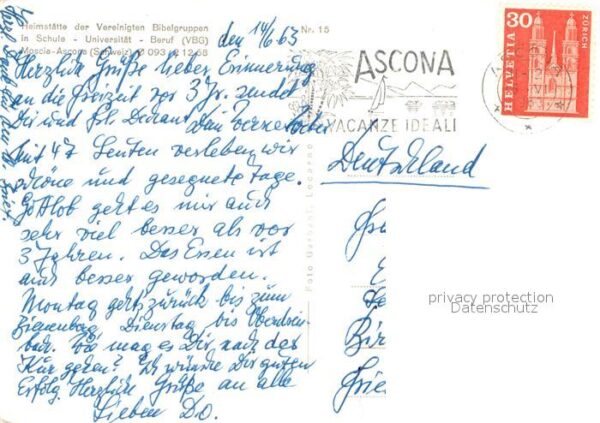 Heimstätte der Vereinigten Bibelgruppen
in Schule - Universität - Beruf (VBG)
Moscia-Ascona (Schweiz) 093 2 12 68
Nr. 15
den 14/6.63
Herzliche Grüße lieben Erinnerung
an die Freizeit vor 3 Jr. sendet
Dir und Frl.
Mit 47 Leuten verleben wir
schöne und gesegnete Tage.
Gottlob geht es mir auch
sehr viel besser als vor
3 Jahren. Das Essen ist
auch besser geworden.
Montag geht's zurück bis zum
Dienstag bis
Wie mag es Dir nach der
Kur gehen? Ich würde Dir guten
Erfolg Herzliche Grüße an alle
Lieben D.O.
Herzl. Dank für den lb. Brief.
ASCONA
VACANZE IDEALI
HELVETIA
30
ZÜRICH
Deutschland
Locarno
privacy protection
Datenschutz